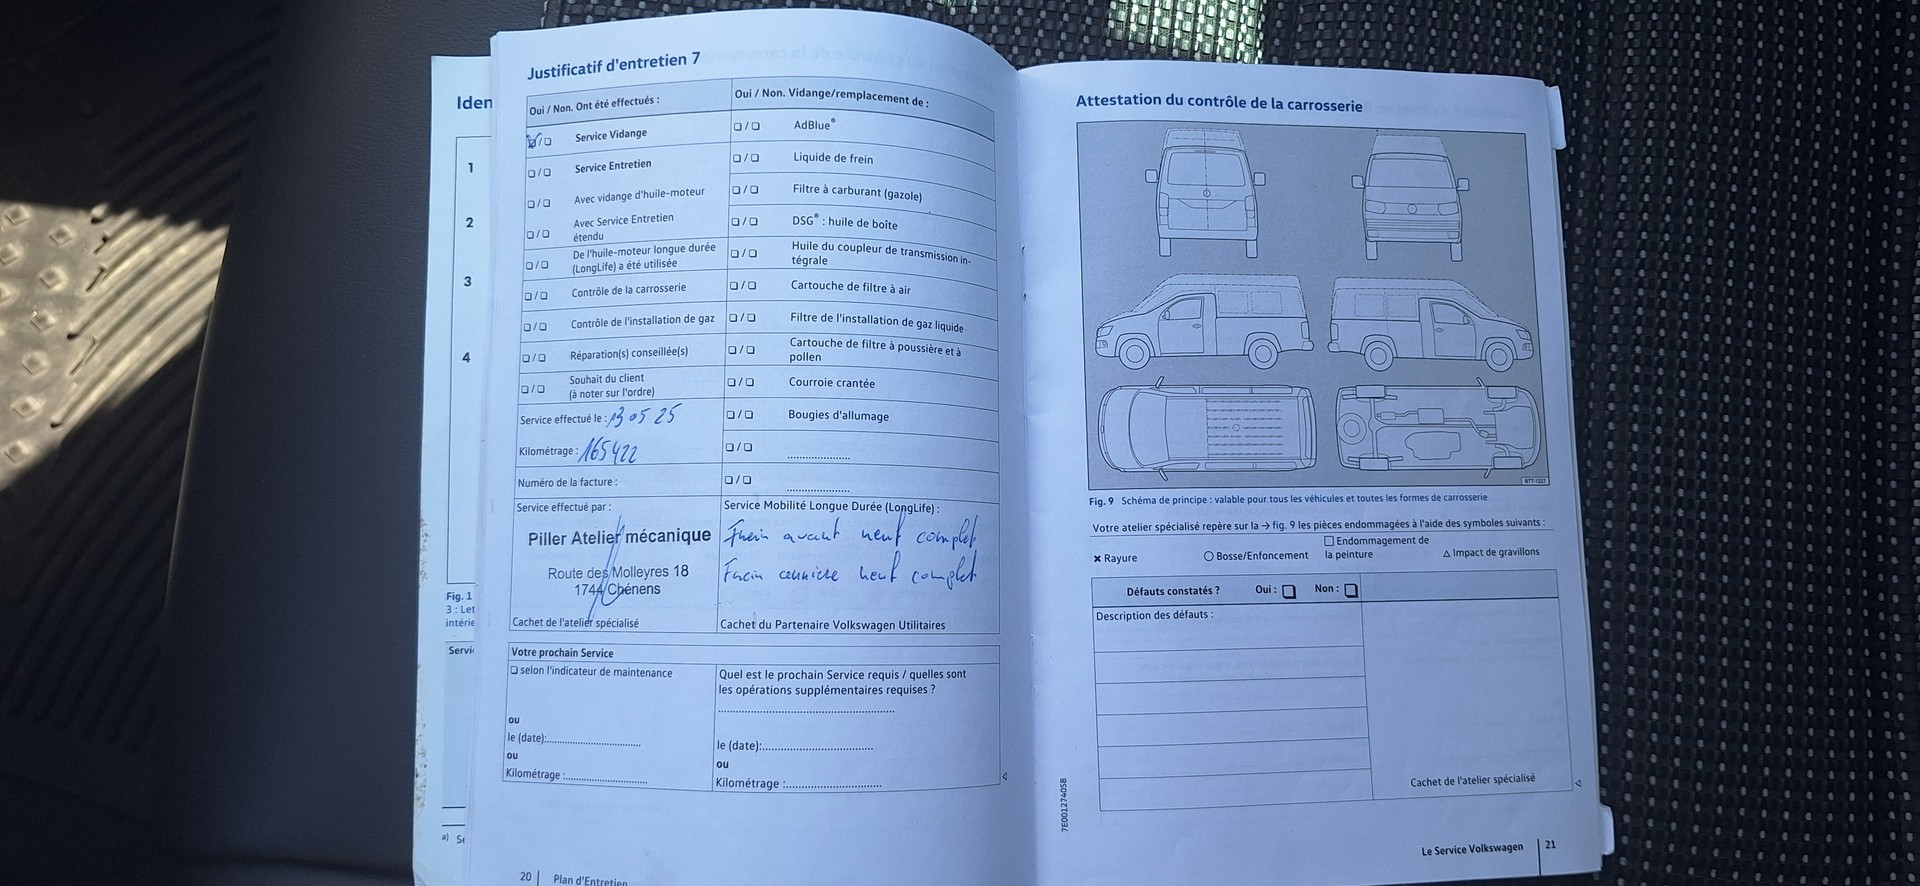 Iden
1
2
3
4
Fig. 1
3 : Let
intérie
Servi
a) Se
Justificatif d'entretien 7
Oui / Non. Ont été effectués :
❏/❏ Service Vidange
❏/❏ Service Entretien
❏/❏ Avec vidange d'huile-moteur
❏/❏ Avec Service Entretien
étendu
❏/❏ De l'huile-moteur longue durée
(LongLife) a été utilisée
❏/❏ Contrôle de la carrosserie
❏/❏ Contrôle de l'installation de gaz
❏/❏ Réparation(s) conseillée(s)
❏/❏ Souhait du client
(à noter sur l'ordre)
Service effectué le : 13 05 25
Kilométrage : 165422
Numéro de la facture :
Oui / Non. Vidange/remplacement de :
❏/❏ AdBlue®
❏/❏ Liquide de frein
❏/❏ Filtre à carburant (gazole)
❏/❏ DSG® : huile de boîte
❏/❏ Huile du coupleur de transmission in-
tégrale
❏/❏ Cartouche de filtre à air
❏/❏ Filtre de l'installation de gaz liquide
❏/❏ Cartouche de filtre à poussière et à
pollen
❏/❏ Courroie crantée
❏/❏ Bougies d'allumage
❏/❏ ....................
❏/❏ ....................
Service effectué par :
Piller Atelier mécanique
Route des Molleyres 18
1744 Chénens
Cachet de l'atelier spécialisé
Service Mobilité Longue Durée (LongLife) :
Frein avant neuf complet
Frein arriere neuf complet
Cachet du Partenaire Volkswagen Utilitaires
Votre prochain Service
❏ selon l'indicateur de maintenance
ou
le (date):..............................
ou
Kilométrage :..........................
Quel est le prochain Service requis / quelles sont
les opérations supplémentaires requises ?
..........................................................
le (date):....................................
ou
Kilométrage :...............................
20 | Plan d'Entretien
Attestation du contrôle de la carrosserie
BTT-1227
Fig. 9 Schéma de principe : valable pour tous les véhicules et toutes les formes de carrosserie
Votre atelier spécialisé repère sur la → fig. 9 les pièces endommagées à l'aide des symboles suivants :
× Rayure
○ Bosse/Enfoncement
□ Endommagement de
la peinture
△ Impact de gravillons
Défauts constatés ? Oui : ❏ Non : ❏
Description des défauts :
Cachet de l'atelier spécialisé
7E0012740SB
Le Service Volkswagen | 21